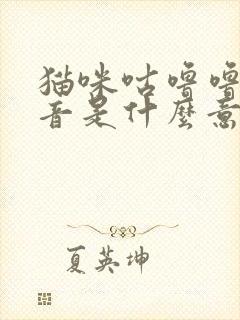 猫咪咕噜噜
音是什麼意
夏英坤